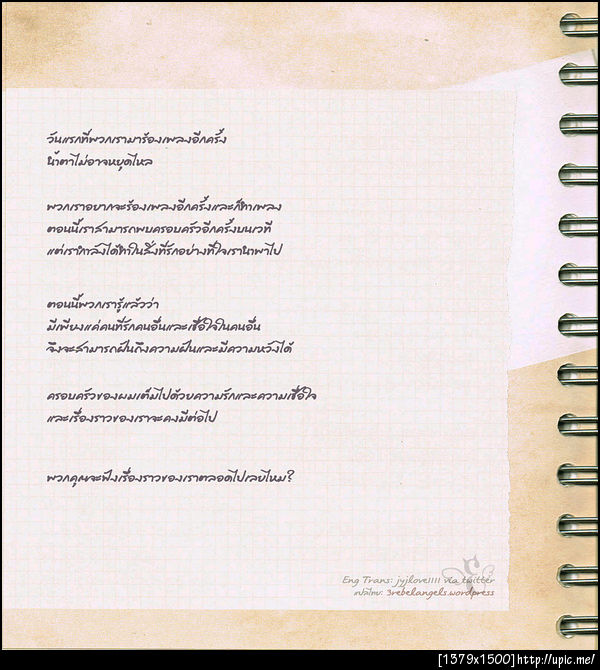 วันแรกที่พวกเรามาร้องเพลงอีกครั้ง
น้ำตาไม่อาจหยุดไหล
พวกเราอยากจะร้องเพลงอีกครั้งและก็ทำเพลง
ตอนนี้เราสามารถพบครอบครัวอีกครั้งบนเวที
แต่เรากำลังได้ทำในสิ่งที่รักอย่างที่ใจเรานำพาไป
ตอนนี้พวกเรารู้แล้วว่า
มีเพียงแค่คนที่รักคนอื่นและเชื่อใจในคนอื่น
จึงจะสามารถฝันถึงความฝันและมีความหวังได้
ครอบครัวของผมเต็มไปด้วยความรักและความเชื่อใจ
และเรื่องราวของเราจะคงมีต่อไป
พวกคุณจะฟังเรื่องราวของเราตลอดไปเลยไหม?
Eng Trans: jyjlove1111 via twitter
แปลไทย: 3rebelangels.wordpress
[1379x1500]http://upic.me/